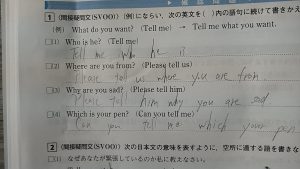 1 (間接疑問文(SVOO)) (例)にならい、次の英文を( )内の語句に続けて書きかえ
(例) What do you want? (Tell me) → Tell me what you want.
□(1) Who is he? (Tell me)
Tell me who he is
□(2) Where are you from? (Please tell us)
Please tell us where you are from
□(3) Why are you sad? (Please tell him)
Please tell him why you are sad
□(4) Which is your pen? (Can you tell me)
Can you tell me which your pen
2 (間接疑問文(SVOO)) 次の日本文の意味を表すように、空所に適する語を書きな
□(1) なぜあなたが緊張しているのか私に教えなさい。